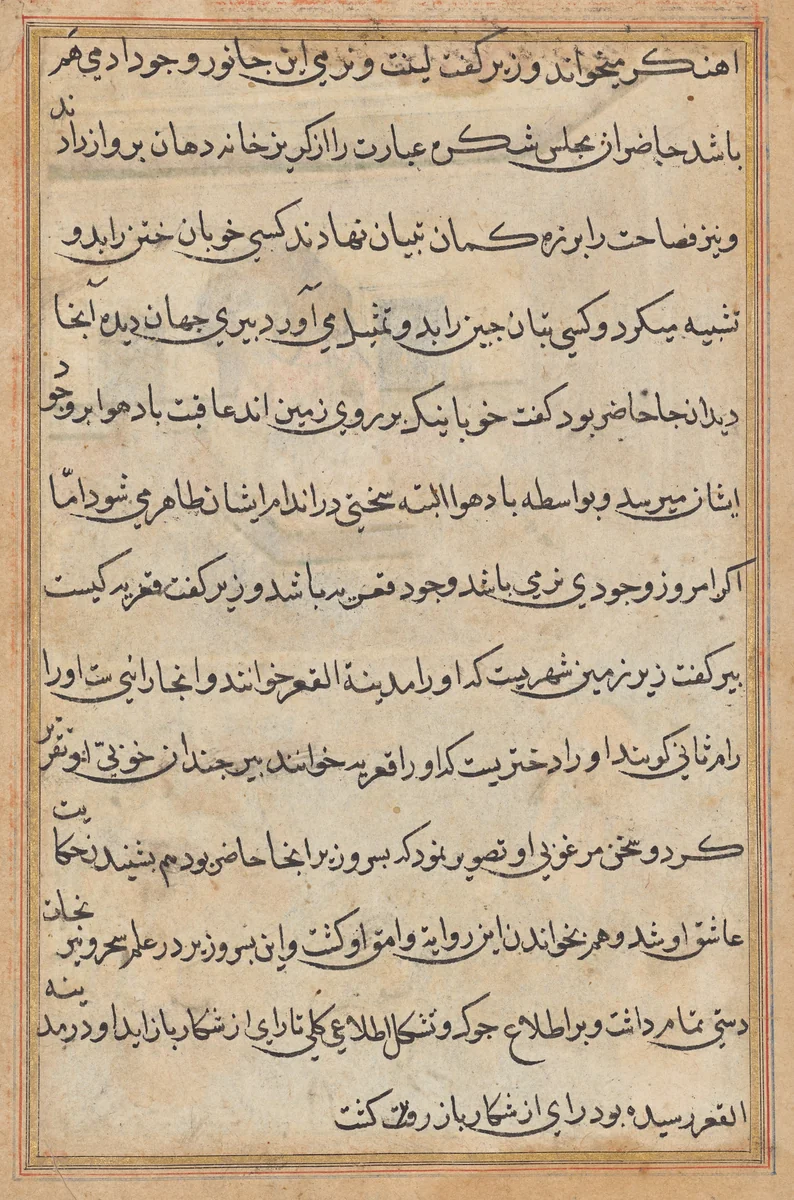 اهنکر میخواند وزیر کفت لینت و نرمی این جانور وجود ادمی هم
باشد حاضران مجلس شکره عبارت را از کریز خانه دهان پرواز دادند
و نیز فصاحت را بر زه کمان تبیان نهادند کسی خوبان ختن را بدو
تشبیه میکرد و کسی بتان جین را بدو تمثیل می آورد بیری جهان دیده آنجا
دیدان جا حاضر بود کفت خوبانیکه بر روی زمین اند عاقبت باد هوا بر وجود
ایشان میرسد و بواسطه باد هوا البته سختی در اندام ایشان ظاهر می شود امّا
اکر امروز وجودی نرمی باشد وجود قعریه باشد وزیر کفت قعریه کیست
بیر کفت زیر زمین شهریست که او را مدینة القعر خوانند و انجا رانیی ست او را
رام ثانی کویند او را دختریست که او را قعریه خوانند بیر جندان خوبیّ او تقریر
کرد و سخن مرغوبی او تصویر نمود که بسر وزیر انجا حاضر بود هم بشنیدن حکایت
عاشق او شد و هم بخواندن این روایة وامق او کشت و این بسر وزیر در علم سحر و نیرنجات
دستی تمام داشت و بر اطلاع جوکه و تشکل اطلاعی کلی تا رای از شکار باز اید او در مدینه
القعر رسیده بود رای از شکار باز کشت